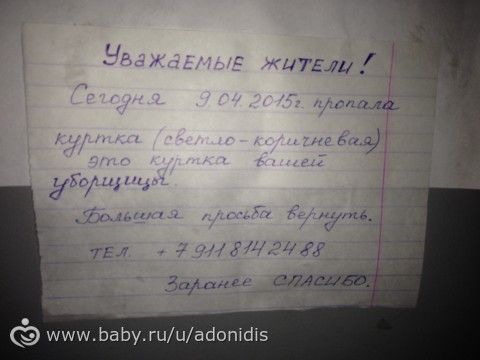 Уважаемые жители!
Сегодня 9.04.2015г. пропала
куртка (светло-коричневая)
это куртка вашей
уборщицы.
Большая просьба вернуть.
тел. +79118142488
Заранее СПАСИБО.
www.baby.ru/u/adonidis